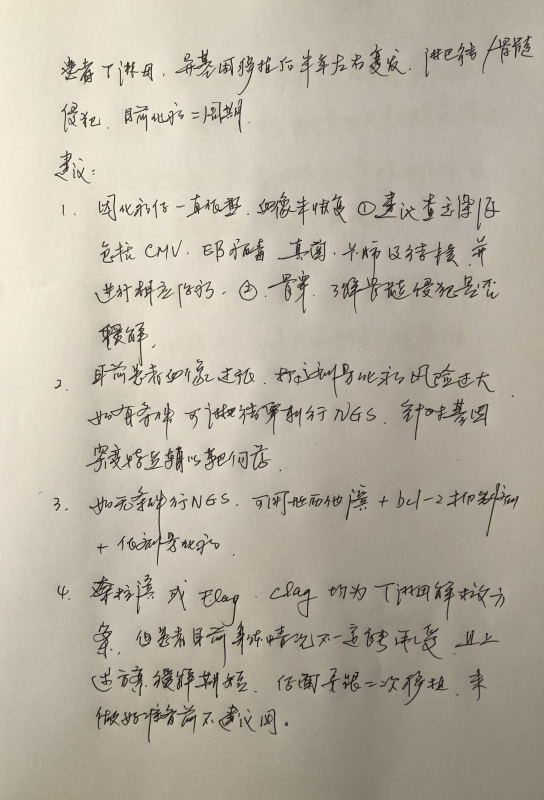 患者T淋母，异基因移植后半年左右复发，淋巴结/骨髓
侵犯，目前化疗二周期。
建议：
1. 因化疗后一直低热，血象未恢复 ①建议查感染
包括CMV、EB病毒、真菌、卡肺及结核，并
进行相应治疗。②.骨穿，了解骨髓侵犯是否
缓解。
2. 目前患者血象过低，按计划化疗风险过大
如有条件可淋巴结穿刺行NGS，针对基因
突变特点辅以靶向药
3. 如无条件行NGS，可用地西他滨 + bcl-2抑制剂
+ 低剂量化疗
4. 奈拉滨 或 Flag、Clag 均为T淋母解救方
案，但患者目前身体情况不一定能耐受，且上
述方案缓解期短，后面要跟二次移植，未
做好准备前不建议用。